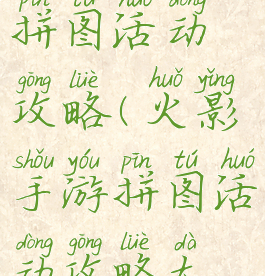 pīn tú huó dòng
拼图活动
gōng lüè huǒ yǐng
攻略(火影
shǒu yóu pīn tú huó
手游拼图活
dòng gōng lüè dà
动攻略大